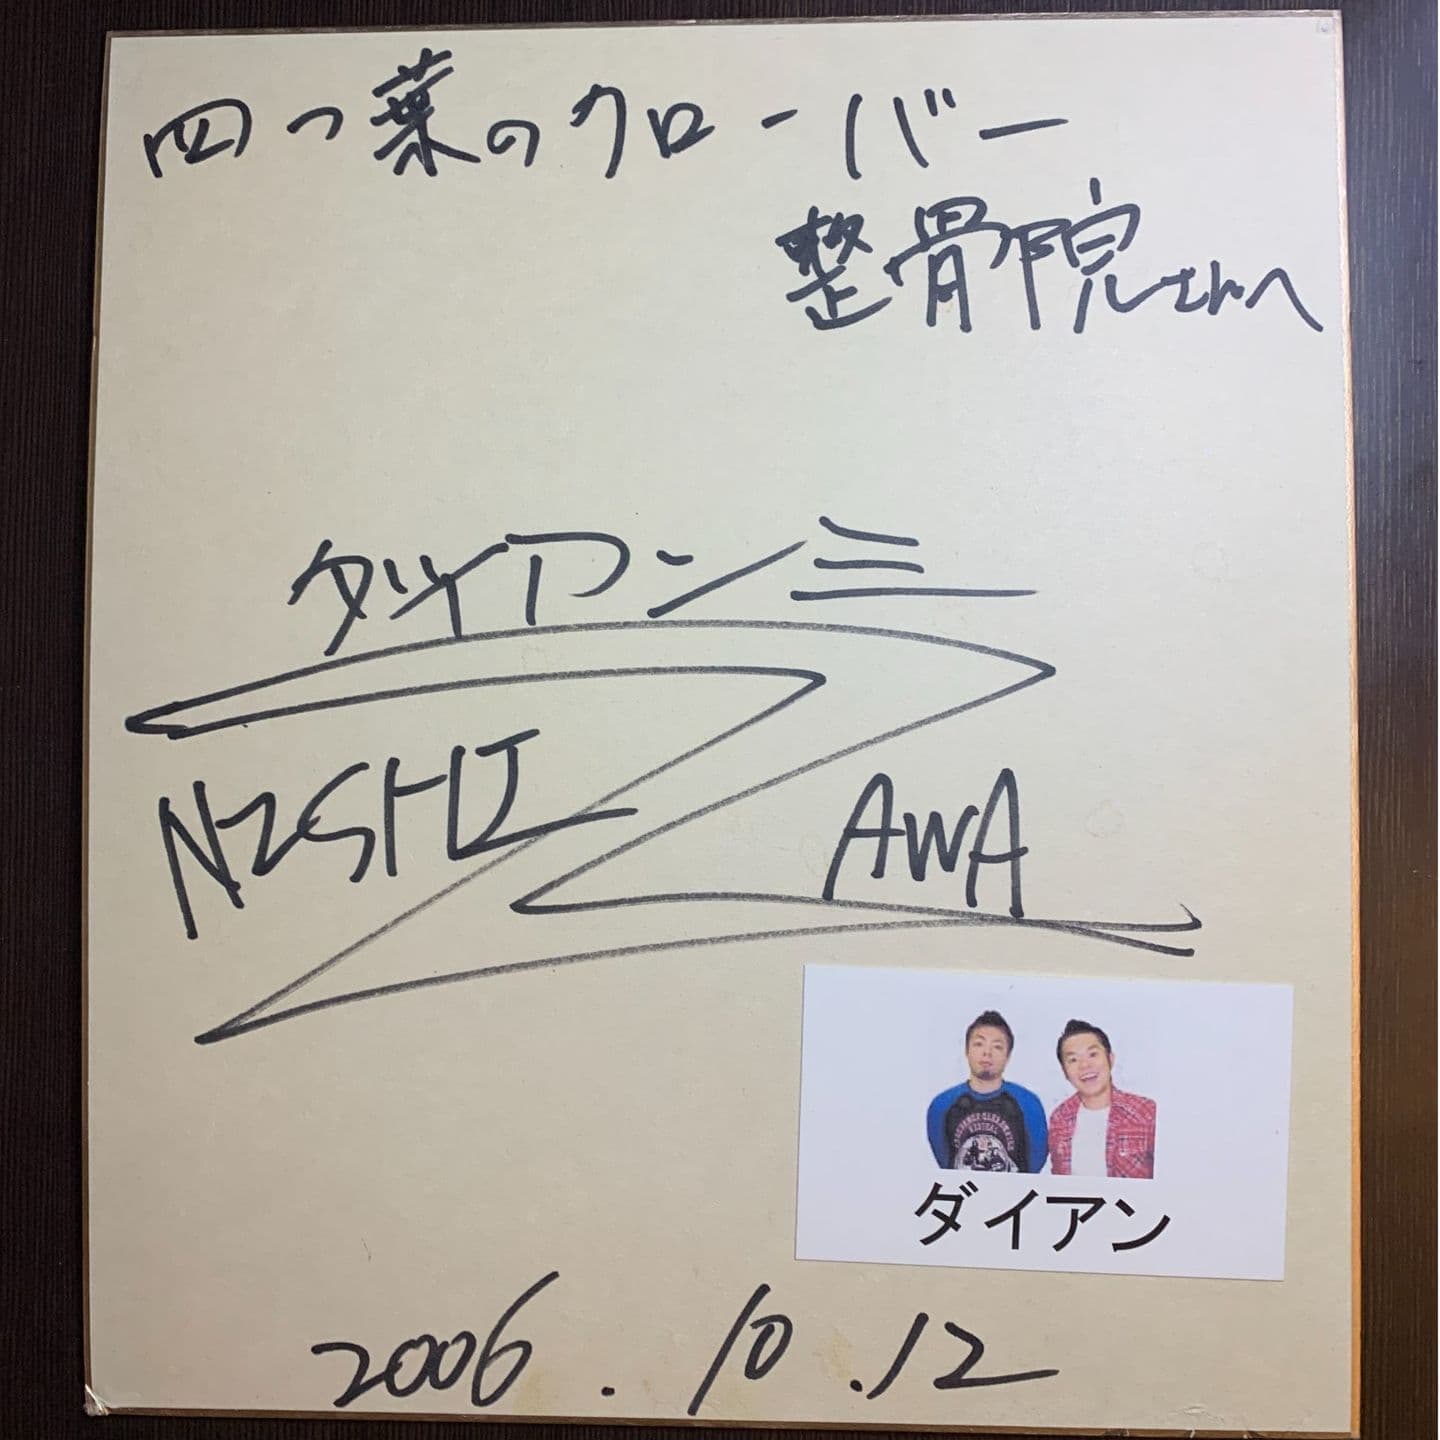 四つ葉のクローバー
整骨院さんへ
ダイアン
NISHIZAWA
ダイアン
2006.10.12